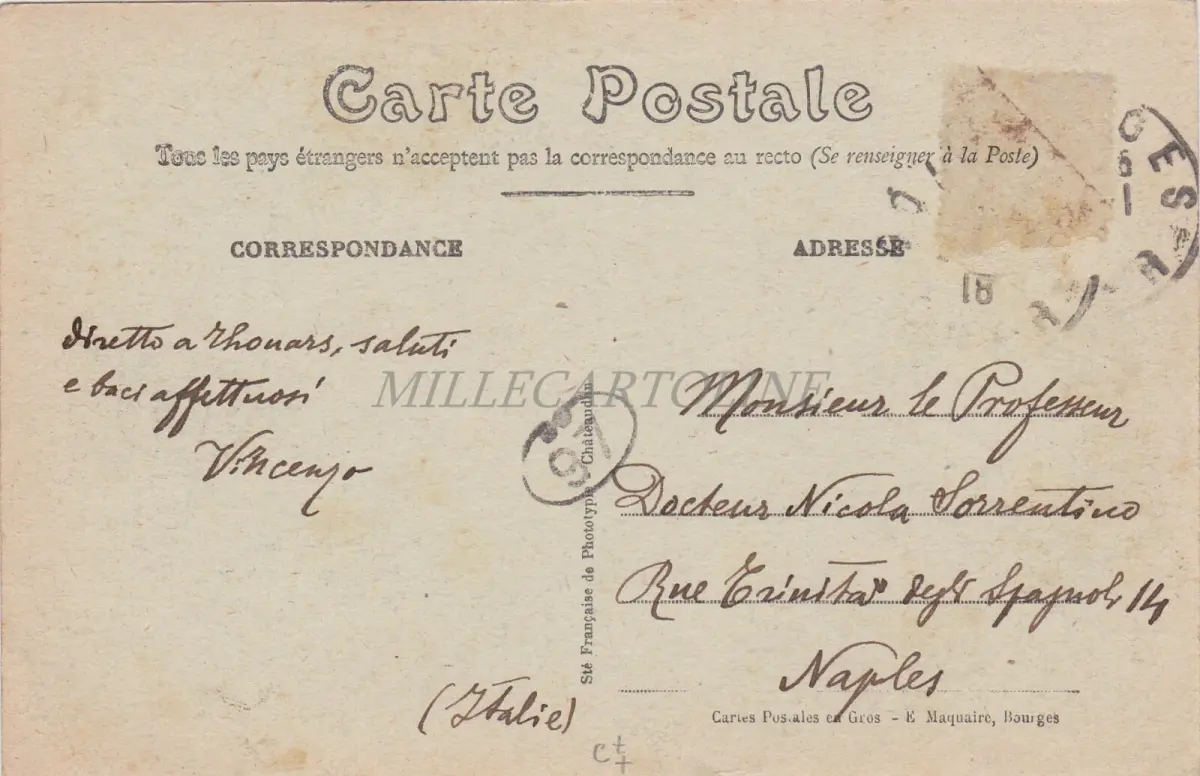 Carte Postale
Tous les pays étrangers n'acceptent pas la correspondance au recto (Se renseigner à la Poste)
CORRESPONDANCE
ADRESSE
18
diretto a Thouars, saluti
e baci affettuosi
Vincenzo
MILLECARTOLINE
97
Sté Française de Phototypie - Châteaudun
Monsieur le Professeur
Docteur Nicola Sorrentino
Rue Trinità degli Spagnoli 14
Naples
(Italie)
Cartes Postales en Gros - E Maquaire, Bourges